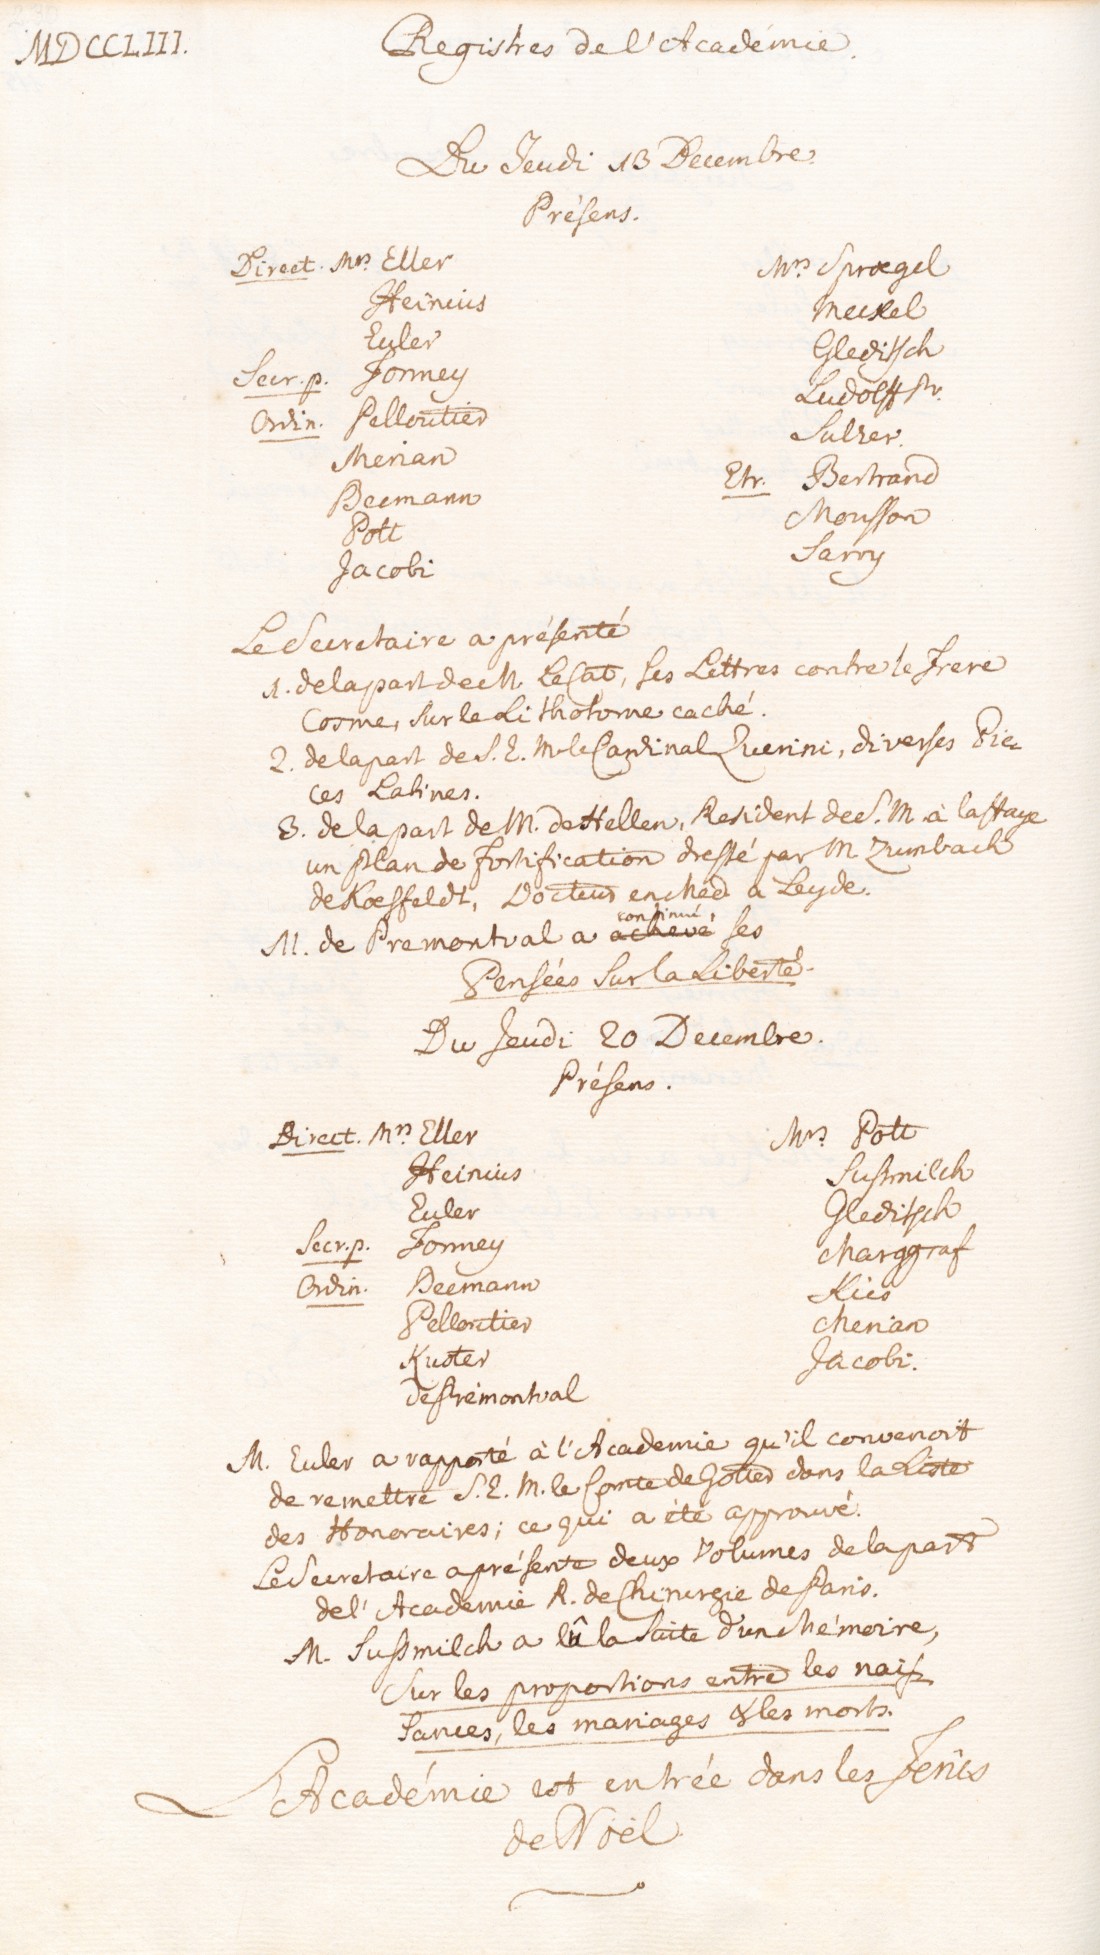 MDCCLIII.
Registres de l'Académie.
Du Jeudi 13 Decembre.
Présens.
Direct. Mrs Eller
Heinius
Euler
Secr. p. Formey
Ordin. Pelloutier
Merian
Becmann
Pott
Jacobi
Mrs Sprœgel
Meckel
Gleditsch
Ludolff Pr.
Sulzer.
Etr. Bertrand
Mousson
Sarry
Le Secretaire a présenté
1. de la part de M Le Cat, ses Lettres contre le Frere
Cosme, sur le Lithotome caché.
2. de la part de S. E. M. le Cardinal Querini, diverses Pie-
ces Latines.
3. de la part de M. de Hellen, Resident de S. M. à la Haye
un plan de fortification dressé par M Zumbach
de Kœsfeldt, Docteur en Med a Leyde.
M. de Premontval a achevé continué ses
Pensées sur la Liberté.
Du Jeudi 20 Decembre.
Présens.
Direct. Mrs Eller
Heinius
Euler
Secr. p. Formey
Ordin. Becmann
Pelloutier
Kuster
de Prémontval
Mrs Pott
Sussmilch
Gleditsch
Marggraf
Kies
Merian
Jacobi.
M. Euler a rapporté à l'Academie qu'il convenoit
de remettre S. E. M. le Comte de Gotter dans la Liste
des Honoraires; ce qui a été approuvé.
Le Secretaire a présenté deux Volumes de la part
de l'Academie R. de Chirurgie de Paris.
M. Sussmilch a lû la Suite d'un Mémoire,
sur les proportions entre les nais-
sances, les mariages & les morts.
L'Académie est entrée dans les Feries
de Nöel